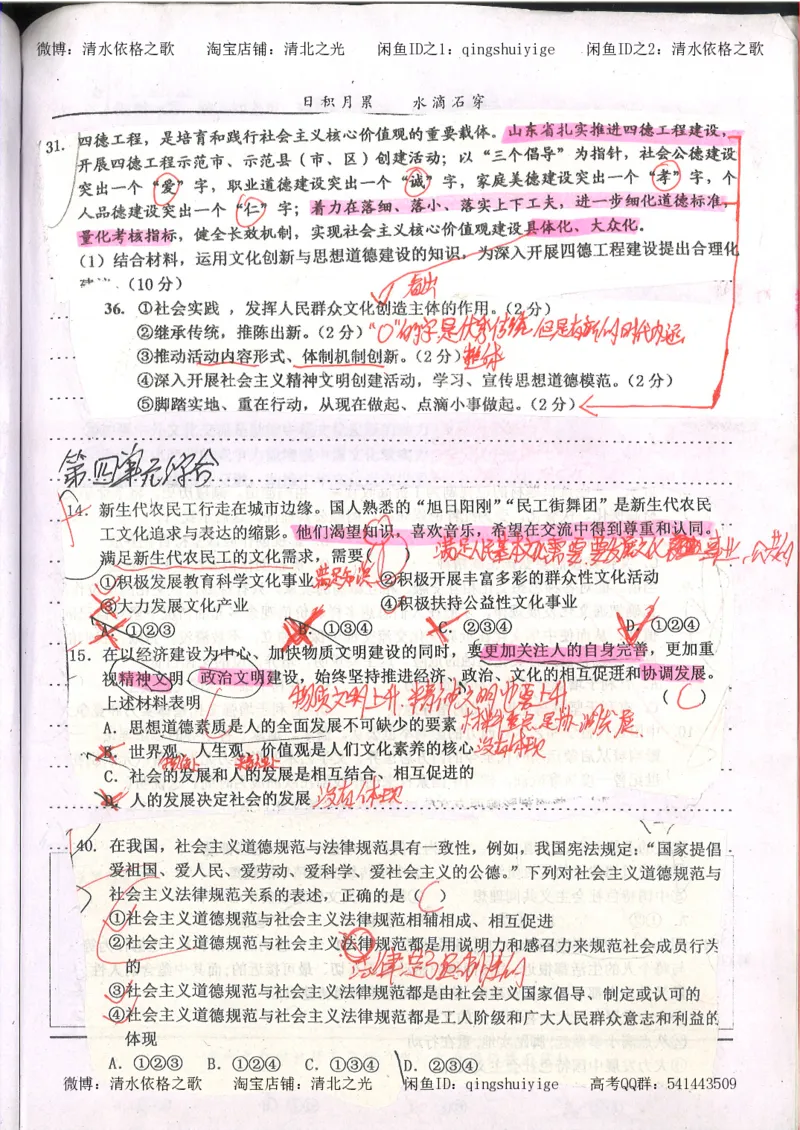 微博：清水依格之歌 淘宝店铺：清北之光 闲鱼ID之1：qingshuiyige 闲鱼ID之2：清水依格之歌
日积月累 水滴石穿
31. 四德工程，是培育和践行社会主义核心价值观的重要载体。山东省扎实推进四德工程建设，
开展四德工程示范市、示范县（市、区）创建活动；以“三个倡导”为指针，社会公德建设
突出一个“爱”字，职业道德建设突出一个“诚”字，家庭美德建设突出一个“孝”字，个
人品德建设突出一个“仁”字；着力在落细、落小、落实上下工夫，进一步细化道德标准，
量化考核指标，健全长效机制，实现社会主义核心价值观建设具体化、大众化。
（1）结合材料，运用文化创新与思想道德建设的知识，为深入开展四德工程建设提出合理化
（10分）
36. ①社会实践 ，发挥人民群众文化创造主体的作用。（2分）
②继承传统，推陈出新。（2分）
③推动活动内容形式、体制机制创新。（2分）
④深入开展社会主义精神文明创建活动，学习、宣传思想道德模范。（2分）
⑤脚踏实地、重在行动，从现在做起、点滴小事做起。（2分）
第四单元综合
14. 新生代农民工行走在城市边缘。国人熟悉的“旭日阳刚”“民工街舞团”是新生代农民
工文化追求与表达的缩影。他们渴望知识，喜欢音乐，希望在交流中得到尊重和认同。
满足新生代农民工的文化需求，需要（ ）
①积极发展教育科学文化事业 满足知识 ②积极开展丰富多彩的群众性文化活动
③大力发展文化产业 ④积极扶持公益性文化事业
A. ①②③ B. ①③④ C. ②③④ D. ①②④
15. 在以经济建设为中心、加快物质文明建设的同时，要更加关注人的自身完善，更加重
视精神文明、政治文明建设，始终坚持推进经济、政治、文化的相互促进和协调发展。
上述材料表明 物质文明上升，精神文明也要上升 （ C ）
A. 思想道德素质是人的全面发展不可缺少的要素
B. 世界观、人生观、价值观是人们文化素养的核心 没有体现
C. 社会的发展和人的发展是相互结合、相互促进的
D. 人的发展决定社会的发展 没有体现
40. 在我国，社会主义道德规范与法律规范具有一致性，例如，我国宪法规定：“国家提倡
爱祖国、爱人民、爱劳动、爱科学、爱社会主义的公德。”下列对社会主义道德规范与
社会主义法律规范关系的表述，正确的是（ C ）
①社会主义道德规范与社会主义法律规范相辅相成、相互促进
②社会主义道德规范与社会主义法律规范都是用说明力和感召力来规范社会成员行为
的 法律是强制性的
③社会主义道德规范与社会主义法律规范都是由社会主义国家倡导、制定或认可的
④社会主义道德规范与社会主义法律规范都是工人阶级和广大人民群众意志和利益的
体现
A. ①②③ B. ①②④ C. ①③④ D. ②③④
微博：清水依格之歌 淘宝店铺：清北之光 闲鱼ID：qingshuiyige 高考QQ群：541443509